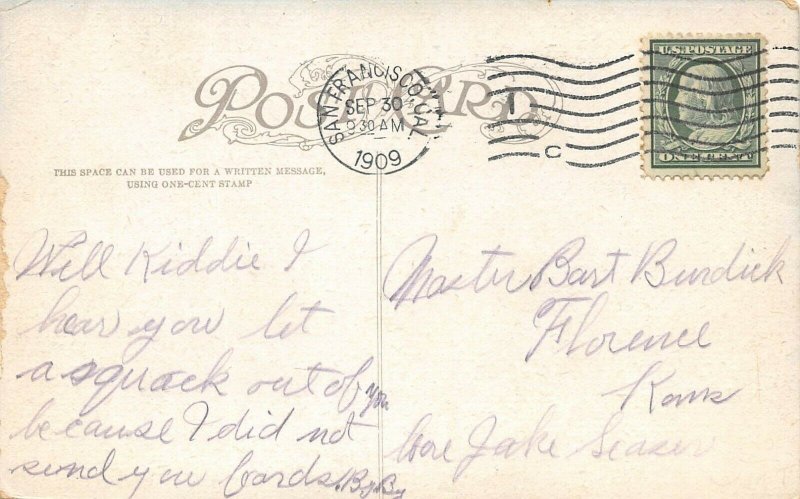 POST CARD
THIS SPACE CAN BE USED FOR A WRITTEN MESSAGE,
USING ONE-CENT STAMP
SAN FRANCISCO, CAL.
SEP 30
930 AM
1909
1
C
U.S. POSTAGE
ONE CENT
Will Kiddie I
hear you let
a squack out of you
because I did not
send you Cards. By By
Master Bart Burdick
Florence
Kans
Care Jake